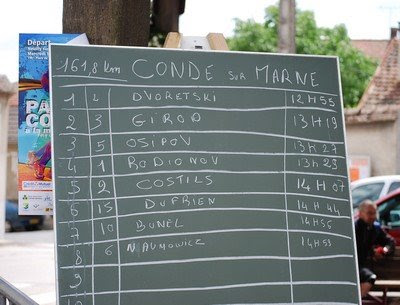 Départ
161,8 km CONDE sur MARNE
1 4 DVORETSKI 12H55
2 3 GIROD 13H19
3 5 OSIPOV 13H27
4 1 RODIONOV 13H29
5 2 COSTILS 14H07
6 15 DUFRIEN 14H44
7 10 BUNEL 14H55
8 6 NAUMOWICZ 14H59
9